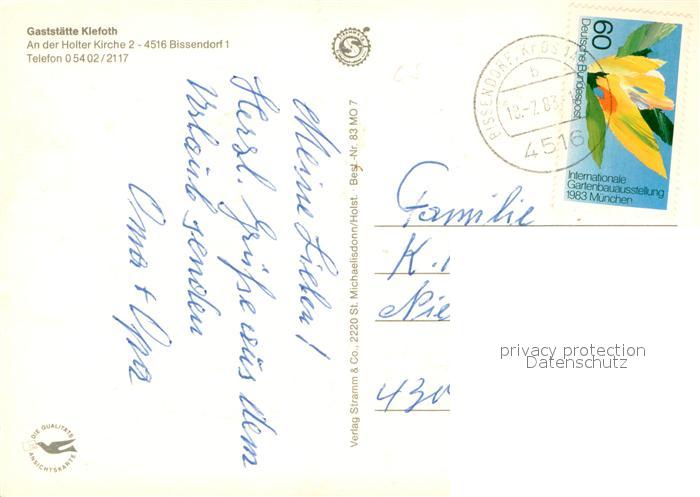 Gaststätte Klefoth
An der Holter Kirche 2 - 4516 Bissendorf 1
Telefon 0 54 02 / 2117
Meine Lieben!
Herzl. Grüße aus dem
Urlaub senden
Oma + Opa
DIE QUALITÄTS
ANSICHTSKARTE
Verlag Stramm & Co., 2220 St. Michaelisdonn/Holst. Best.-Nr. 83 MO 7
BISSENDORF, KR OS 1
b
18.-7.83
4516
60
Deutsche Bundespost
Internationale
Gartenbauausstellung
1983 München
Familie
K.
Nie
430
privacy protection
Datenschutz